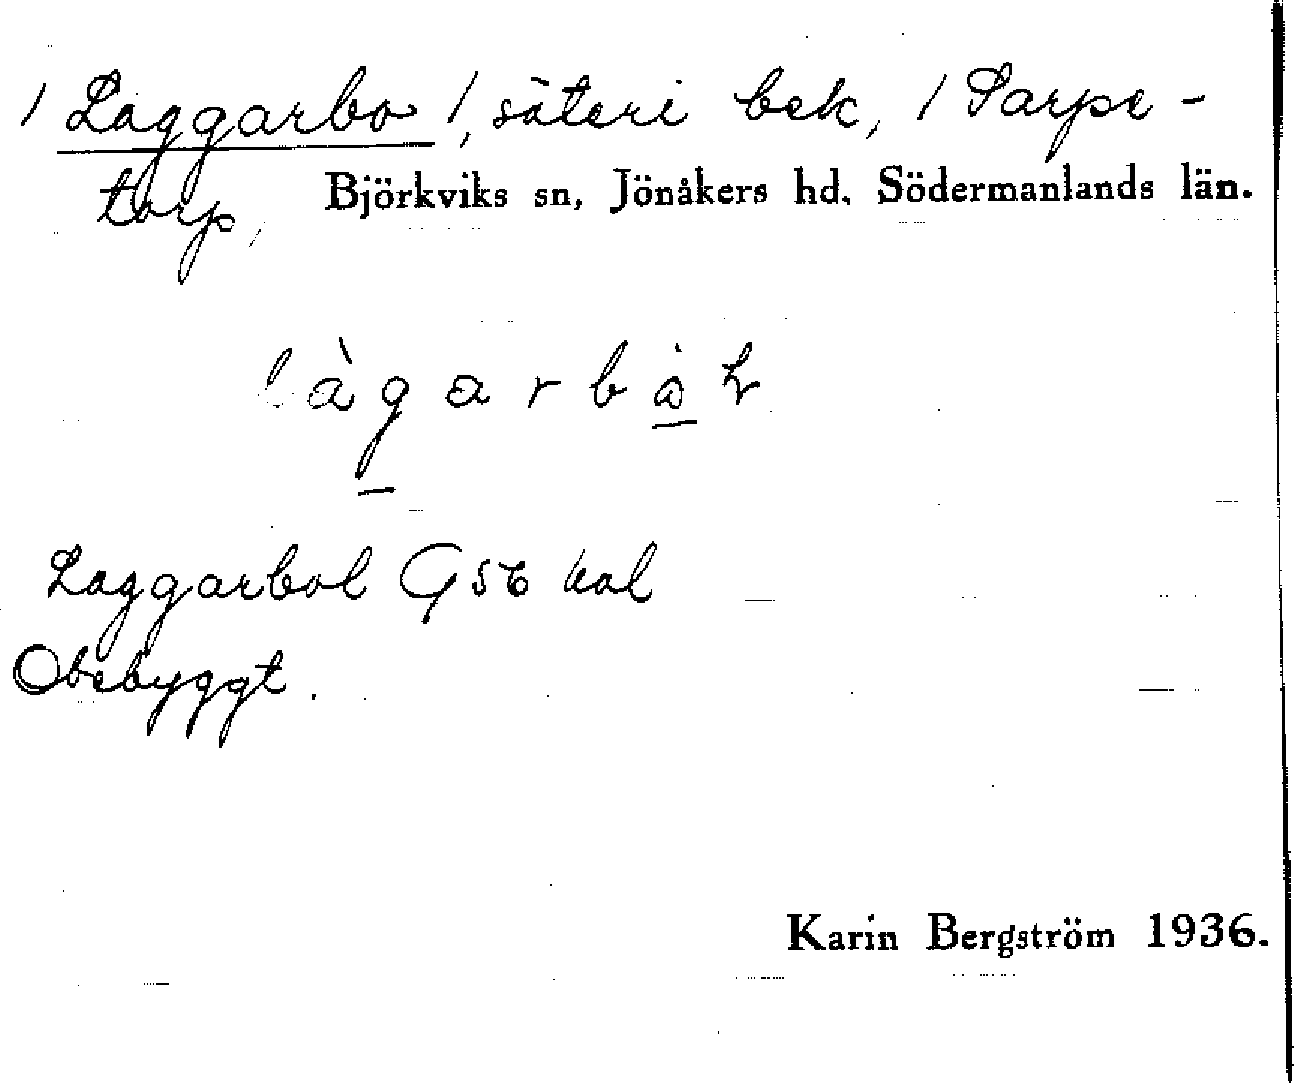 / Laggarbo /, säteri bek, / Sarpe-
torp, Björkviks sn, Jönåkers hd, Södermanlands län.
làgarbå̀
Laggarbol G56 kol
Obebyggt.
Karin Bergström 1936.